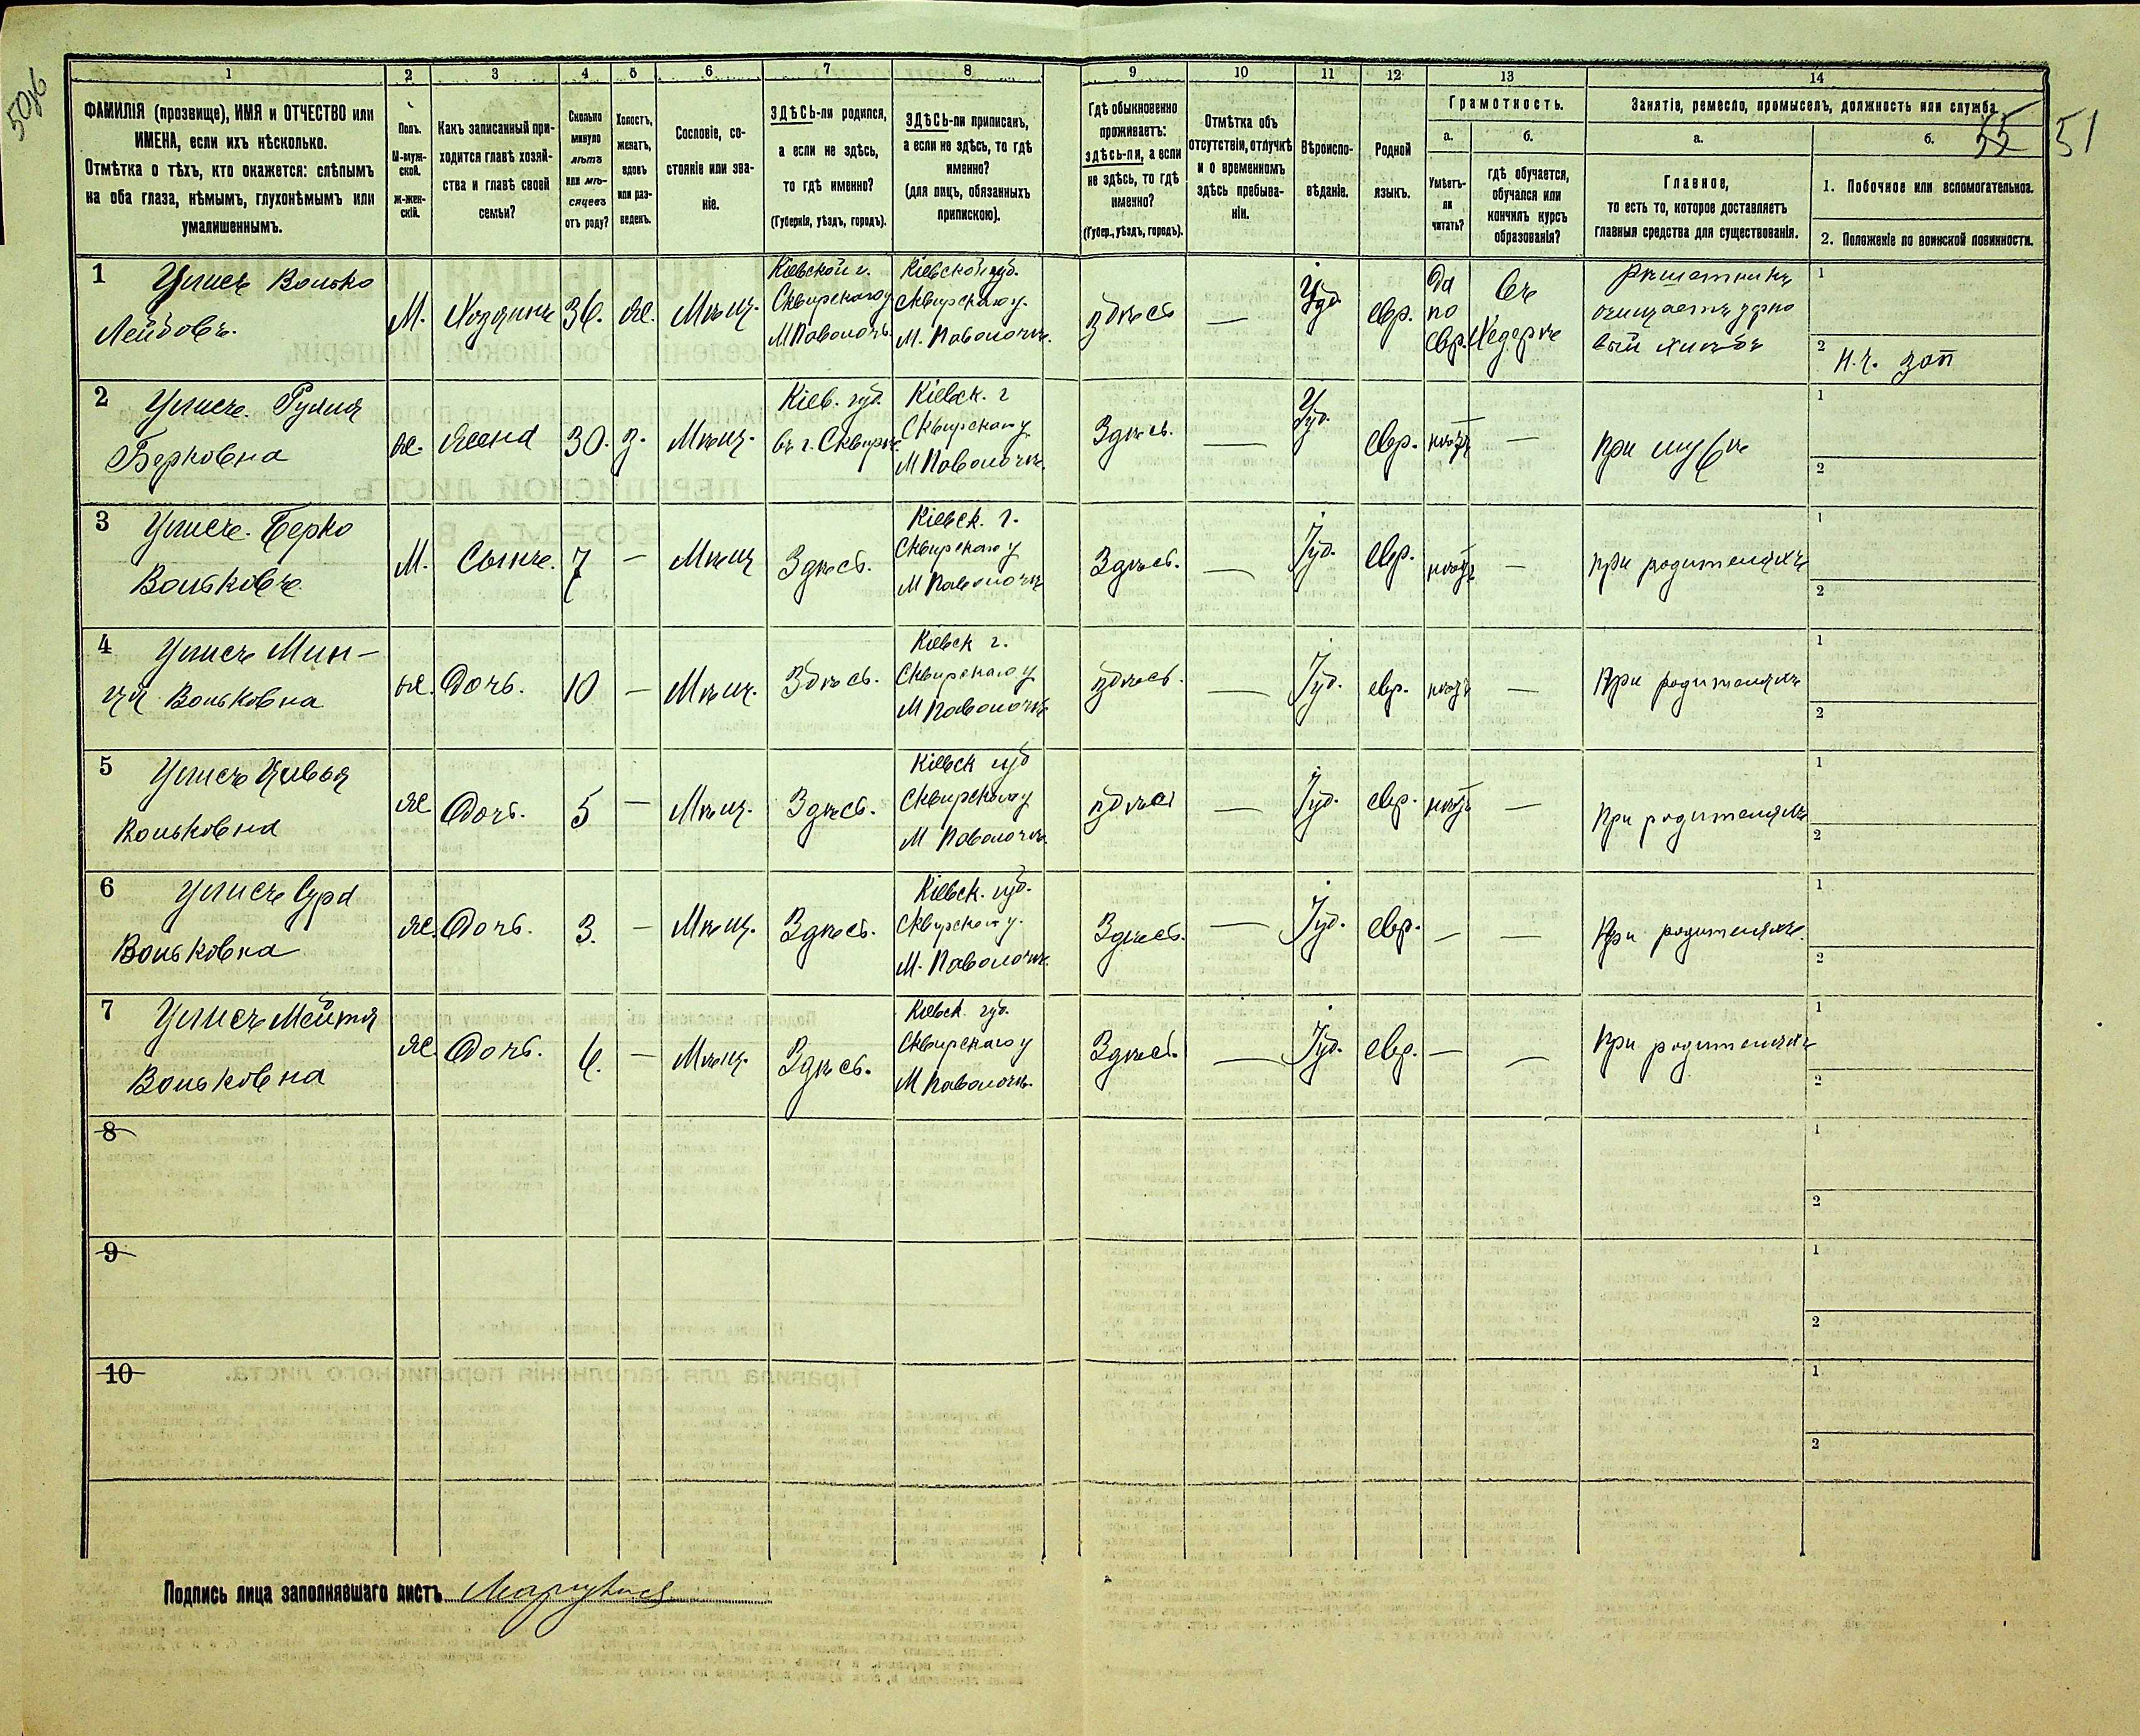 50об
55 51
1 2 3 4 5 6 7 8 9 10 11 12 13 14
ФАМИЛІЯ (прозвище), ИМЯ и ОТЧЕСТВО или
ИМЕНА, если ихъ нѣсколько.
Отмѣтка о тѣхъ, кто окажется: слѣпымъ
на оба глаза, нѣмымъ, глухонѣмымъ или
умалишеннымъ.
Полъ.
М-муж-
ской.
Ж-жен-
скій.
Какъ записанный при-
ходится главѣ хозяй-
ства и главѣ своей
семьи?
Сколько
минуло
лѣтъ
или мѣ-
сяцевъ
отъ роду?
Холостъ,
женатъ,
вдовъ
или раз-
веденъ.
Сословіе, со-
стояніе или зва-
ніе.
ЗДѢСЬ-ли родился,
а если не здѣсь,
то гдѣ именно?
(Губернія, уѣздъ, городъ).
ЗДѢСЬ-ли приписанъ,
а если не здѣсь, то гдѣ
именно?
(для лицъ, обязанныхъ
припискою).
Гдѣ обыкновенно
проживаетъ:
здѣсь-ли, а если
не здѣсь, то гдѣ
именно?
(Губер., уѣздъ, городъ).
Отмѣтка объ
отсутствіи, отлучкѣ
и о временномъ
здѣсь пребыва-
ніи.
Вѣроиспо-
вѣданіе.
Родной
языкъ.
Грамотность.
а.
Умѣетъ-
ли
читать?
б.
гдѣ обучается,
обучался или
кончилъ курсъ
образованія?
Занятіе, ремесло, промыселъ, должность или служба.
а.
Главное,
то есть то, которое доставляетъ
главныя средства для существованія.
б.
1. Побочное или вспомогательное.
2. Положеніе по воинской повинности.
1 Улисъ Волько
Лейбовъ.
М.
Хозяинъ
36.
Ж.
Мѣщ.
Кіевской г.
Сквирского у
М Паволочь.
Кіевской губ.
Сквирского у.
М. Паволочѣ.
здѣсь
—
Іуд.
евр.
Да
по
евр.
Въ
Хедерѣ
очищаетъ зерно
вый хлѣбъ
1
2 Н.ч. зап
2 Улисъ. Рухля
Берковна
Ж.
Жена
30.
з.
Мѣщ.
Кіев. губ.
въ г. Сквирѣ
Кіевск. г
Сквирского у
М Паволочѣ.
Здѣсь.
—
Іуд.
евр.
нѣтъ
—
При мужѣ
1
2
3 Улисъ. Берко
Вольковъ.
М.
Сынъ.
7
—
Мѣщ
Здѣсь.
Кіевск. г.
Сквирского у
М Паволочѣ
Здѣсь.
—
Іуд.
евр.
нѣтъ
—
При родителяхъ
1
2
4 Улисъ Мин-
ця Вольковна
ж.
Дочь.
10
—
Мѣщ.
Здѣсь.
Кіевск г.
Сквирского у
М Паволочѣ
здѣсь.
—
Іуд.
евр.
нѣтъ
—
При родителяхъ
1
2
5 Улисъ Цивья
Вольковна
Ж
Дочь.
5
—
Мѣщ.
Здѣсь.
Кіевск губ
Сквирского у
М Паволочѣ.
здѣсь
—
Іуд.
евр.
нѣтъ
—
При родителяхъ
1
2
6 Улисъ Сура
Вольковна
Ж.
Дочь.
3.
—
Мѣщ.
Здѣсь.
Кіевск. губ.
Сквирского у.
М. Паволочѣ.
Здѣсь.
—
Іуд.
евр.
—
—
При родителяхъ.
1
2
7 Улисъ Мейтя
Вольковна
Ж.
Дочь.
—
Мѣщ.
Здѣсь.
Кіевск губ.
Сквирского у
М Паволочь.
Здѣсь.
—
Іуд.
евр.
—
—
При родителяхъ
1
2
8
1
2
9
1
2
10
1
2
Подпись лица заполнявшаго листъ